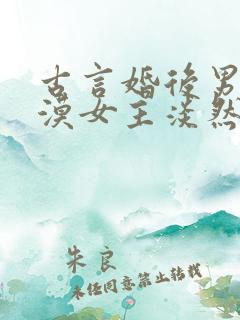 古言婚后男
漠女主淡然
朱良
未经同意禁止转载